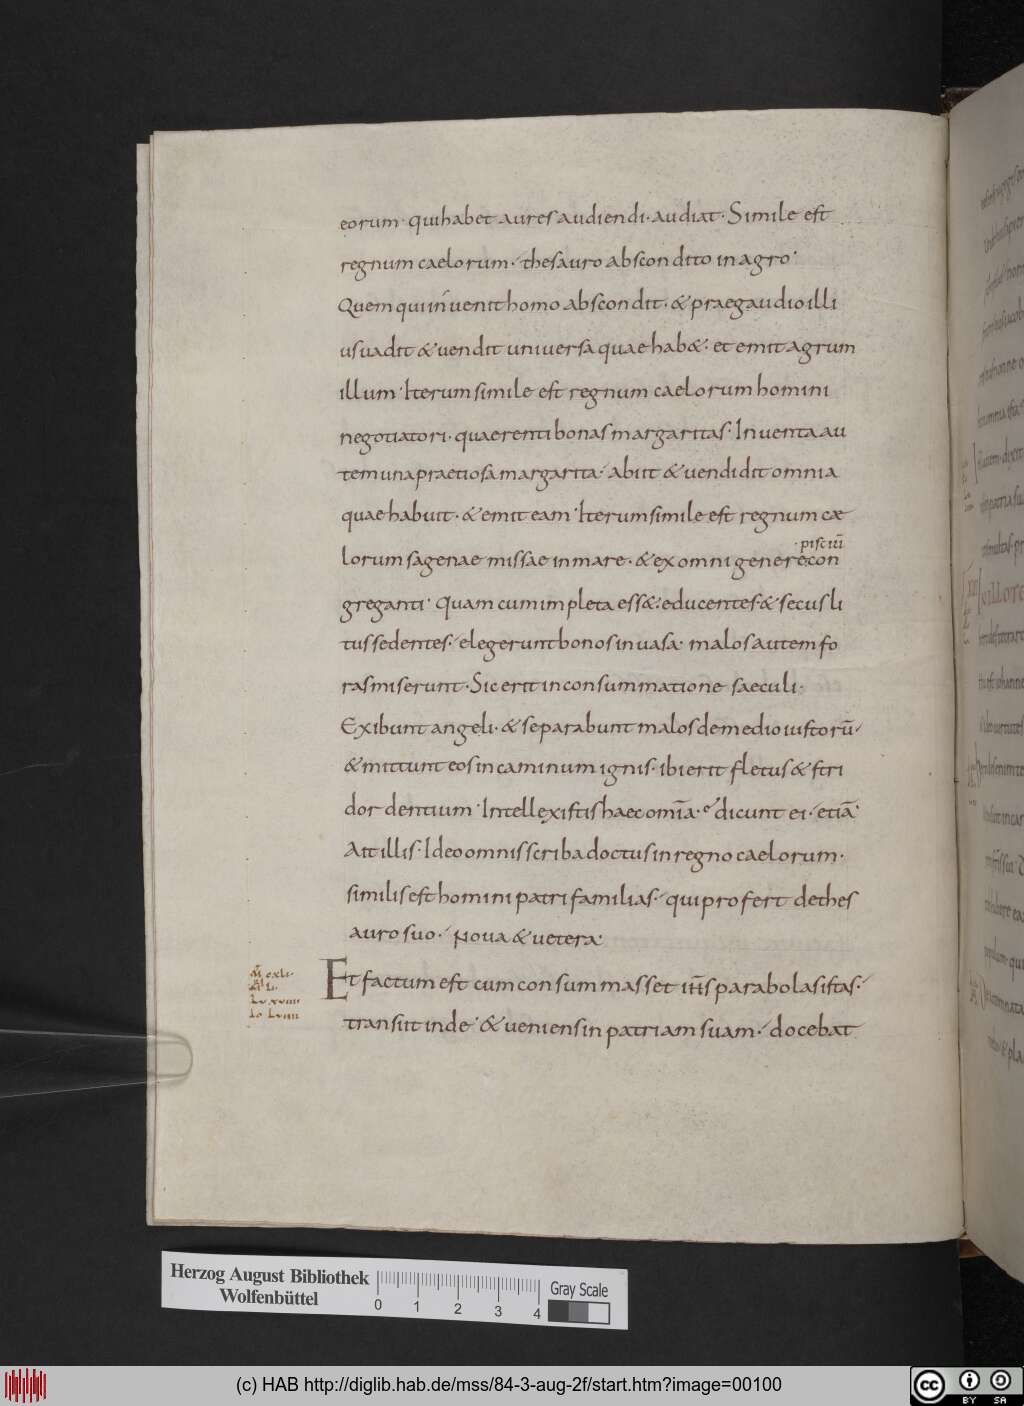 eorum· qui habet aures audiendi· audiat· Simile est
regnum caelorum· thesauro abscondito in agro·
Quem qui invenit homo abscondit· & prae gaudio illi
us vadit & vendit universa quae hab&· et emit agrum
illum· Iterum simile est regnum caelorum homini
negotiatori· quaerenti bonas margaritas· Inventa au
tem una praetiosa margarita· abiit & vendidit omnia
quae habuit· & emit eam· Iterum simile est regnum cae
·pisciū
lorum sagenae missae in mare· & ex omni genere con
greganti· Quam cum impleta ess&· educentes· & secus li
tus sedentes· elegerunt bonos in vasa· malos autem fo
ras miserunt· Sic erit in consummatione saeculi·
Exibunt angeli· & separabunt malos de medio iustorū·
& mittunt eos in caminum ignis· ibi erit fletus & stri
dor dentium· Intellexistis haec omīa· dicunt ei· etiā·
Ait illis· Ideo omnis scriba doctus in regno caelorum·
similis est homini patri familias· qui profert de thes
auro suo· Nova & vetera·
Et factum est cum consummasset ih̄s parabolas istas·
transiit inde· & veniens in patriam suam· docebat
Herzog August Bibliothek
Wolfenbüttel
0 1 2 3 4
Gray Scale
(c) HAB http://diglib.hab.de/mss/84-3-aug-2f/start.htm?image=00100
cc BY SA